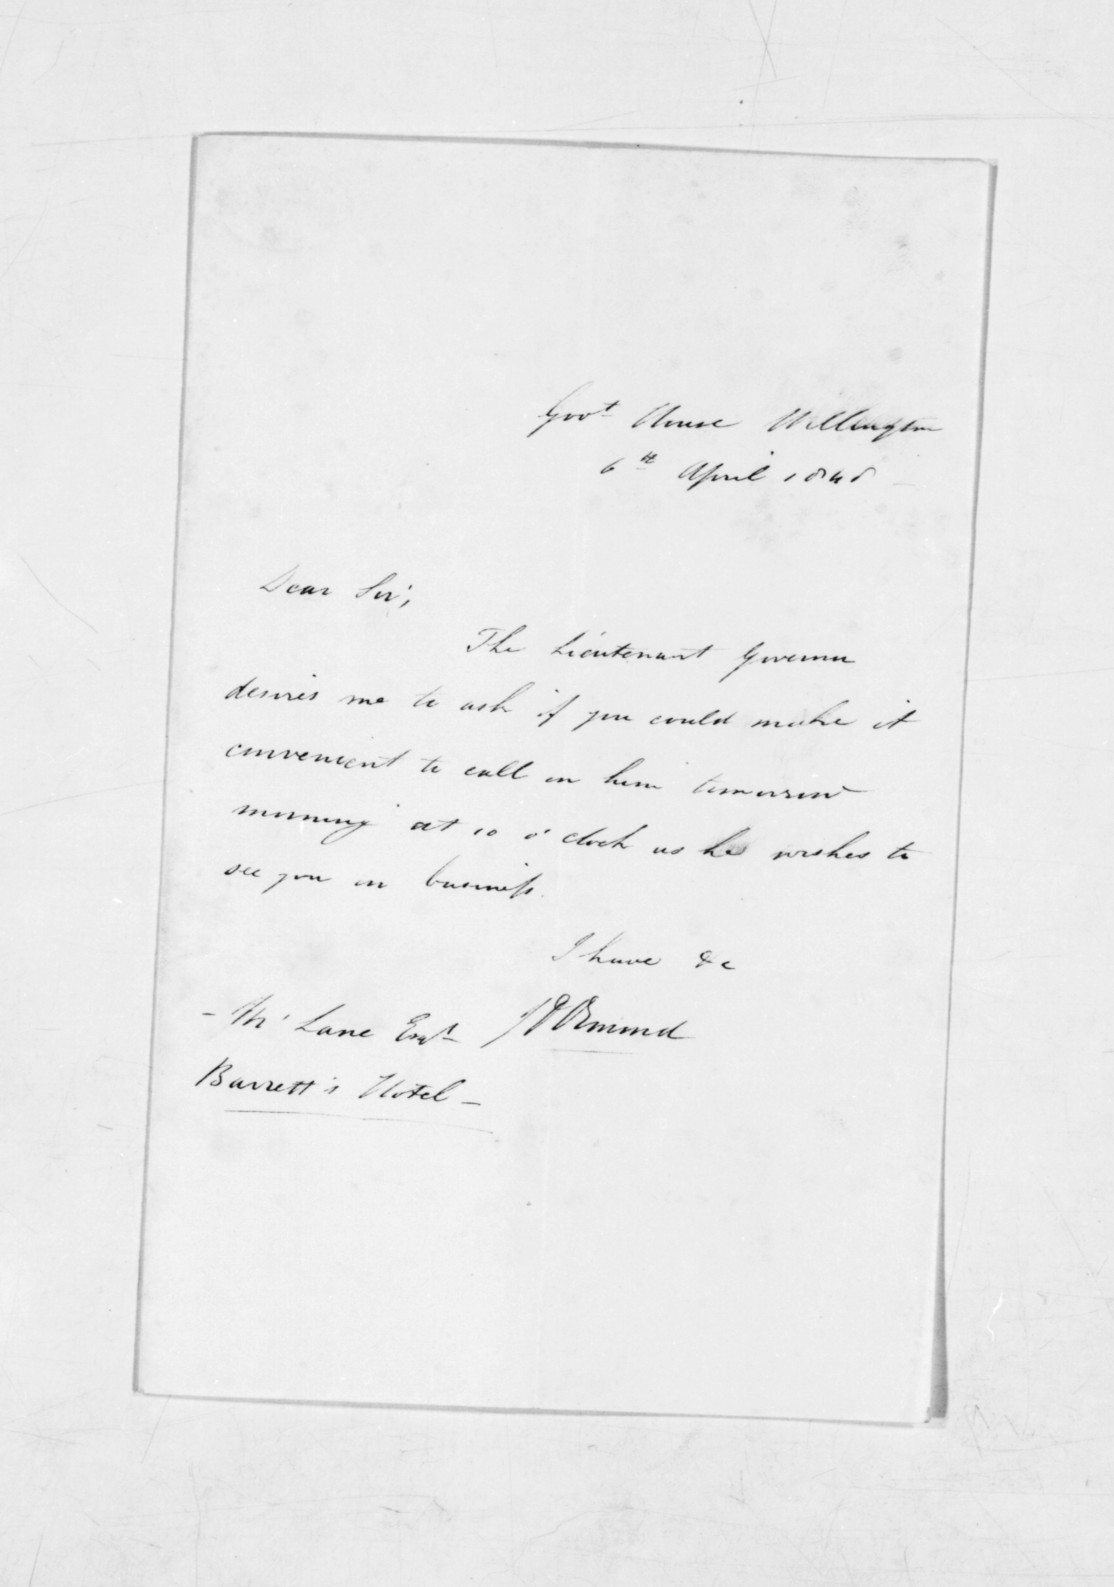 Govt House Wellington
6th April 1848
Dear Sir,
The Lieutenant Governor
desires me to ask if you could make it
convenient to call on him tomorrow
morning at 10 o'clock as he wishes to
see you on business.
I have &c
- Mc Lane Esqr JDOrmond
Barrett's Hotel -